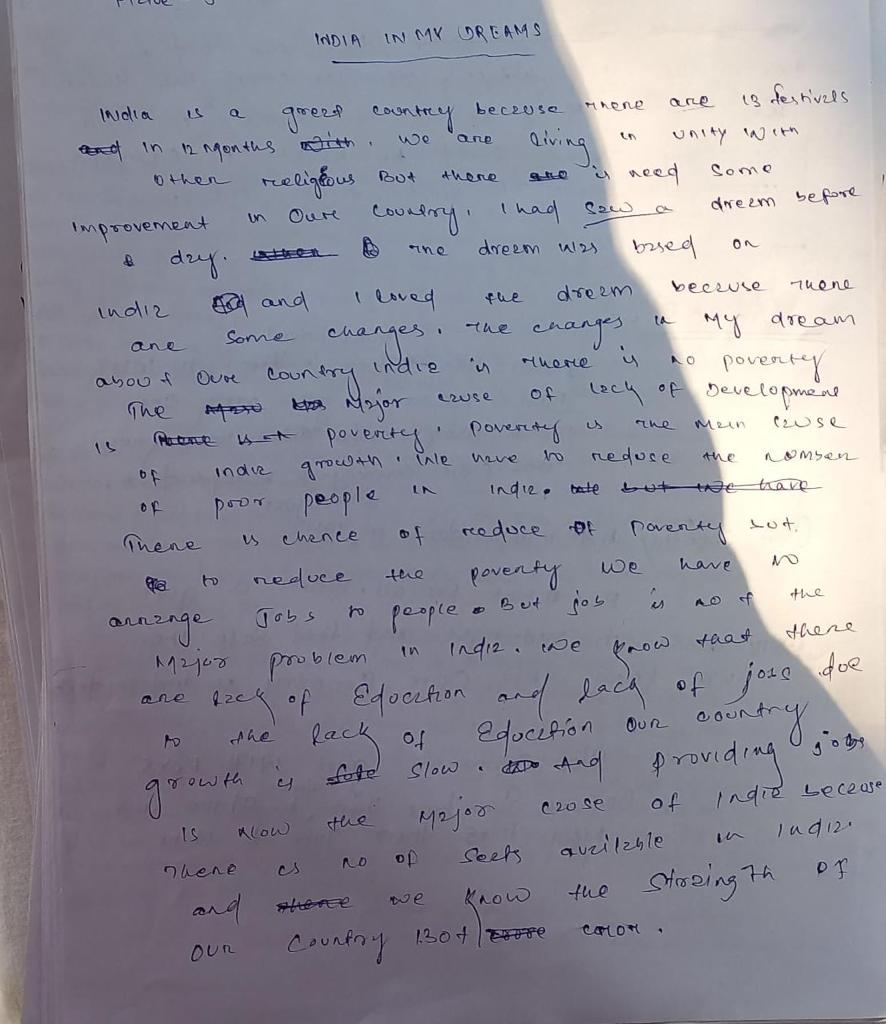 INDIA IN MY DREAMS
India is a greet country because there are 13 festivals
and in 12 Months with. We are living in unity with
Other religious But there are is need some
improvement in Oure Country. I had saw a dreem before
a day. The dreem was based on
India and I loved the dreem because There
are Some changes. The changes in My dream
about Oure Country India is There is no poverty
The Major cause of lack of Development
is poverty. Poverty is the main cause
of india growth. We have to reduce the number
of poor people in India. but we have
There is chence of reduce of Poverty but.
to reduce the poverty we have no
arrange Jobs to people. But job is not the
Major problem in India. We know that there
are lack of Education and lack of jobs due
to the lack of Education Our country
growth is Slow. And Providing jobs
is Now the Major cause of India because
There is no of Seets available in India.
and there we Know the Streingth of
Our Country 130+ coror.